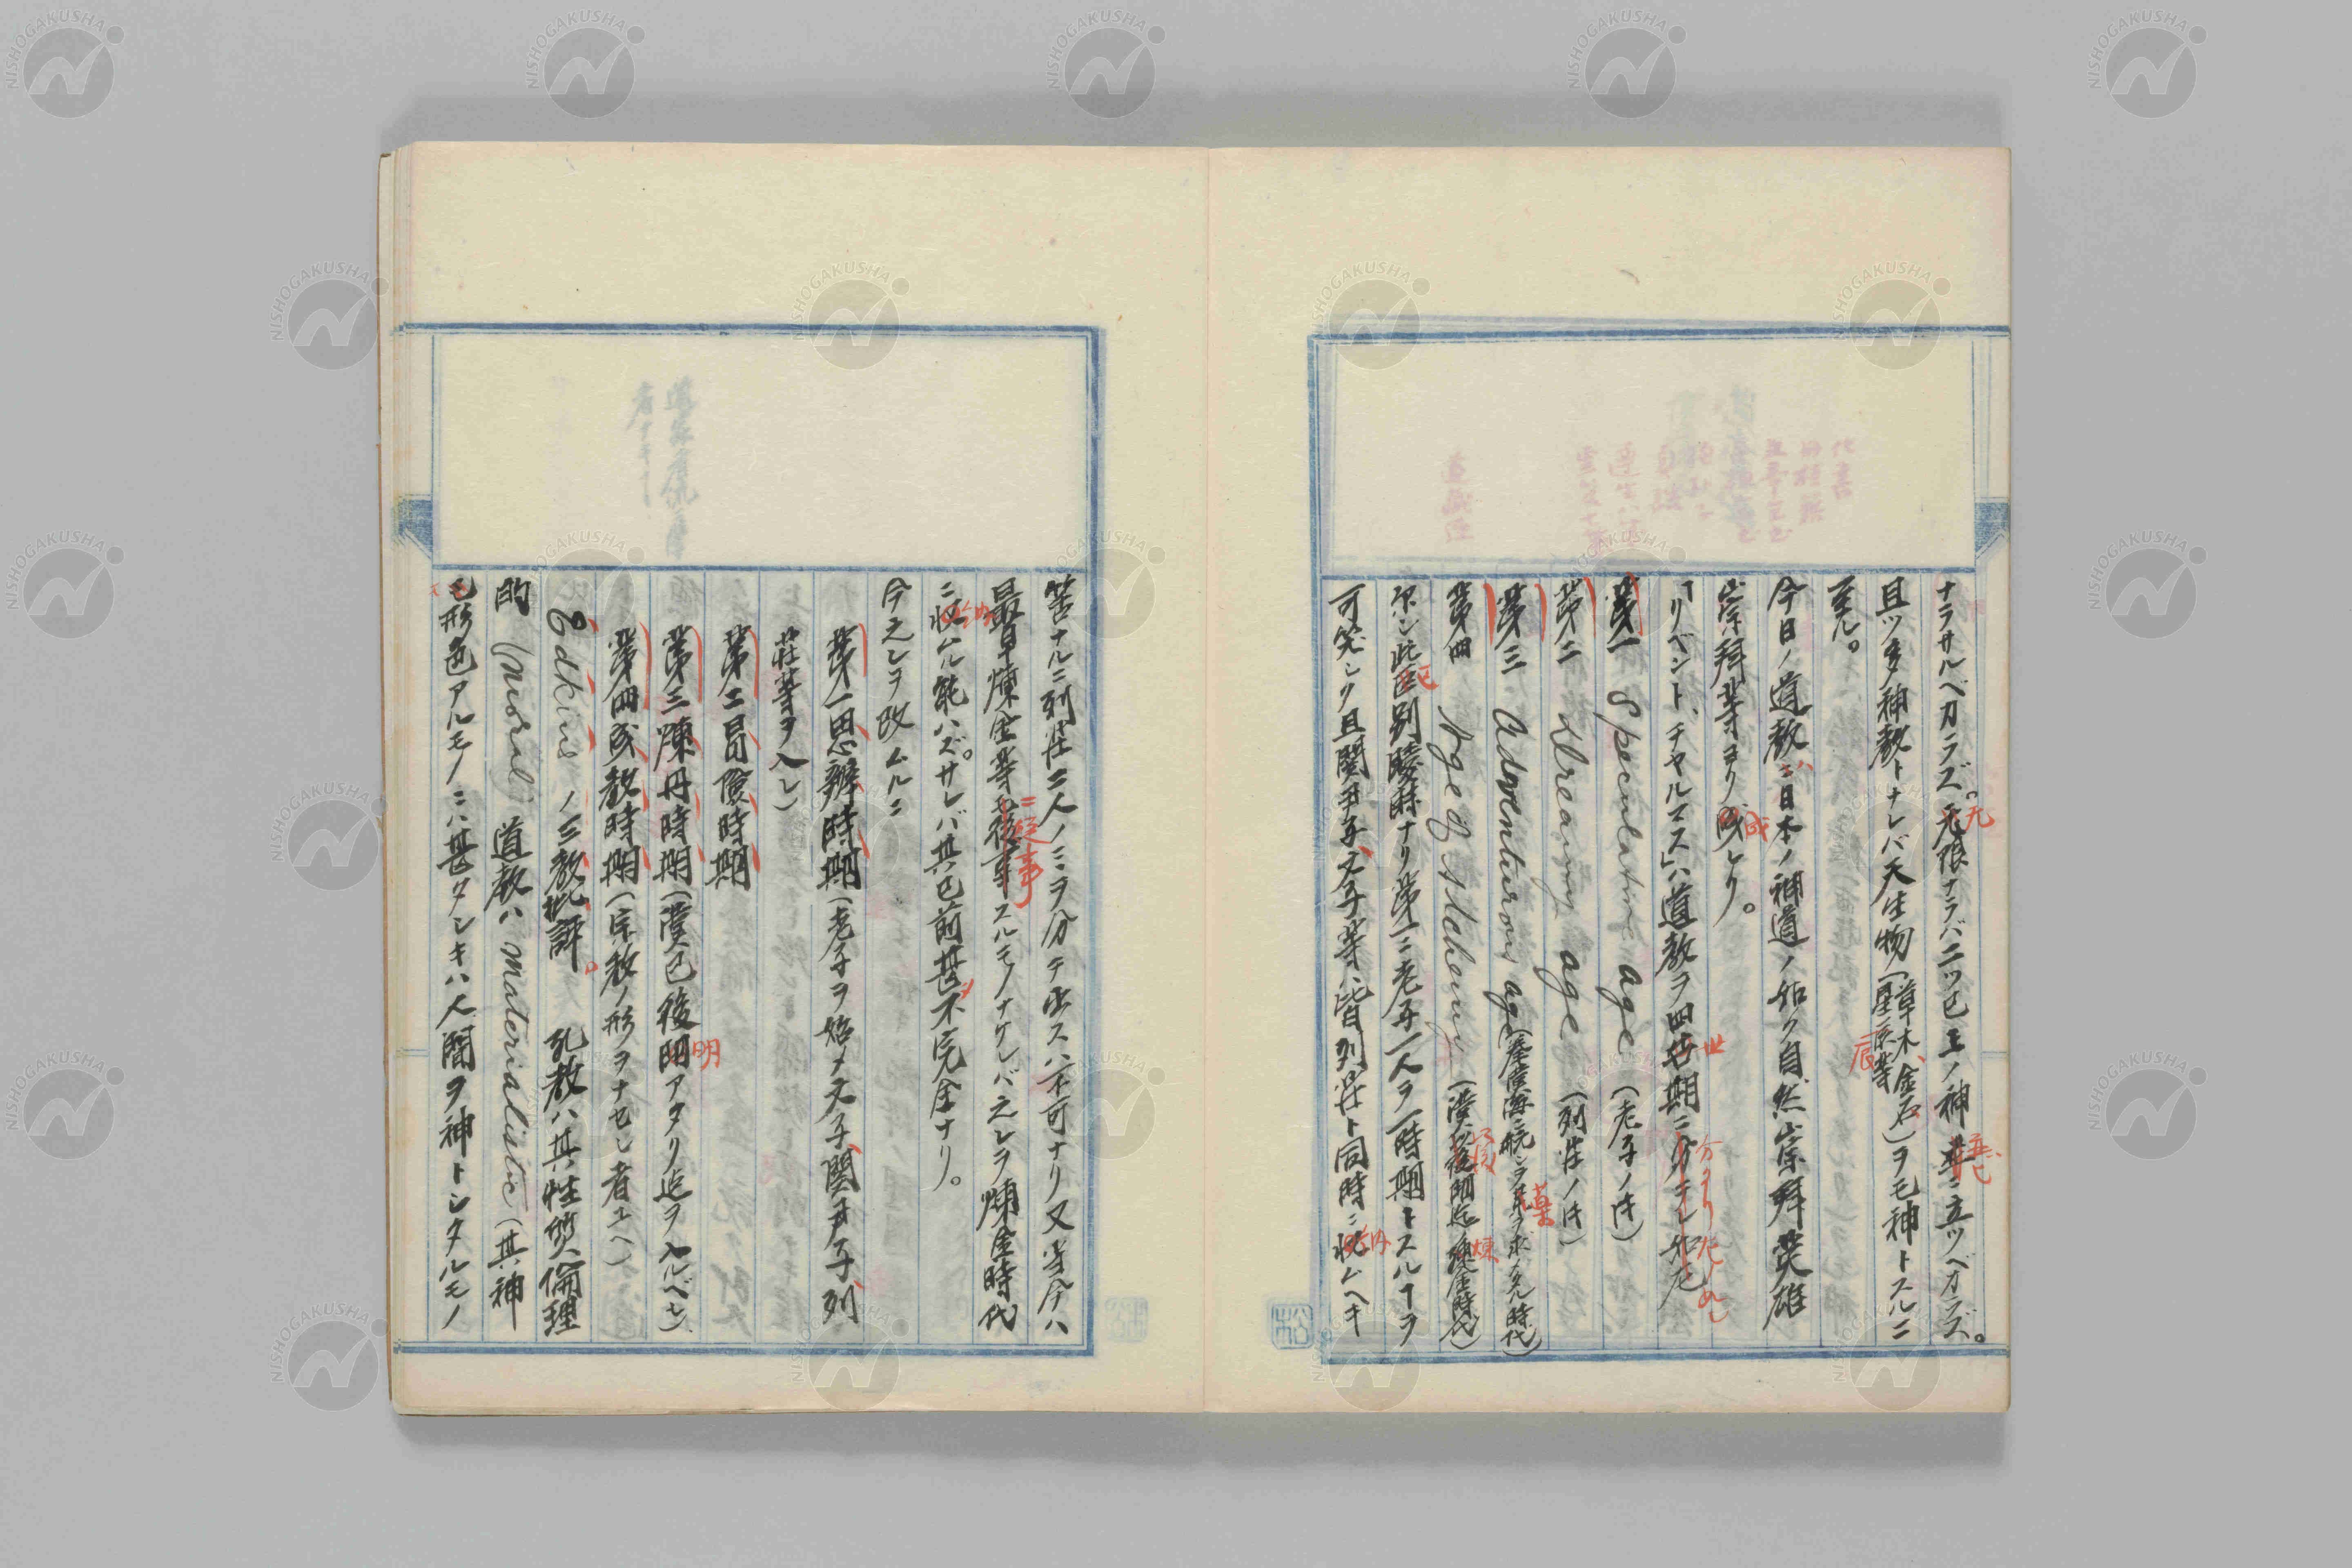 ナラサルベカラズ。无限ナラバ二ツ已上ノ神並ニ立ツベカラズ。
且ツ多神教トナレバ天生物(草木、金石、星辰等)ヲモ神トスルニ
至ル。
今日ノ道教ハ日本ノ神道ノ如ク自然崇拜英雄
崇拜等ヨリ成レリ。
「リベント、チヤルマス」ハ道教ヲ四世期ニ分
第一 Speculative age (老子ノ時)
第二 Dreaming age (列荘ノ時)
第三 Adventurous age (蓬莱海ニ航シ薬ヲ求メタル時代)
第四 Age of Alchemy (漢以後明迄煉金時代)
然シ此區別曖昧ナリ第一ニ老子一人ヲ一時期トスルヿヲ
可笑シク且關尹子、文子等ハ皆列荘ト同時ニ收ムヘキ
筈ナルニ列荘二人ノミヲ分テ出スハ不可ナリ又当今ハ
最早煉金等ニ從事スルモノナケレバ之レヲ煉金時代
ニ收ムル能ハズ。サレバ其已前甚不完全ナリ。
今之レヲ改ムルニ
第一思辨時期(老子ヲ始メ文子、關尹子、列
荘等ヲ入レ)
第二冒險時期
第三煉丹時期(漢已後明アタリ迄ヲ入ルベシ)
第四成教時期(宗教ノ形ヲナセシ者ユヘ)
Edkins ノ三教批評。 孔教ハ其性質倫理
的 (moral) 道教ハ materialistic (其神
ニ形色アルモノニハ甚タシキハ人間ヲ神トシタルモノ